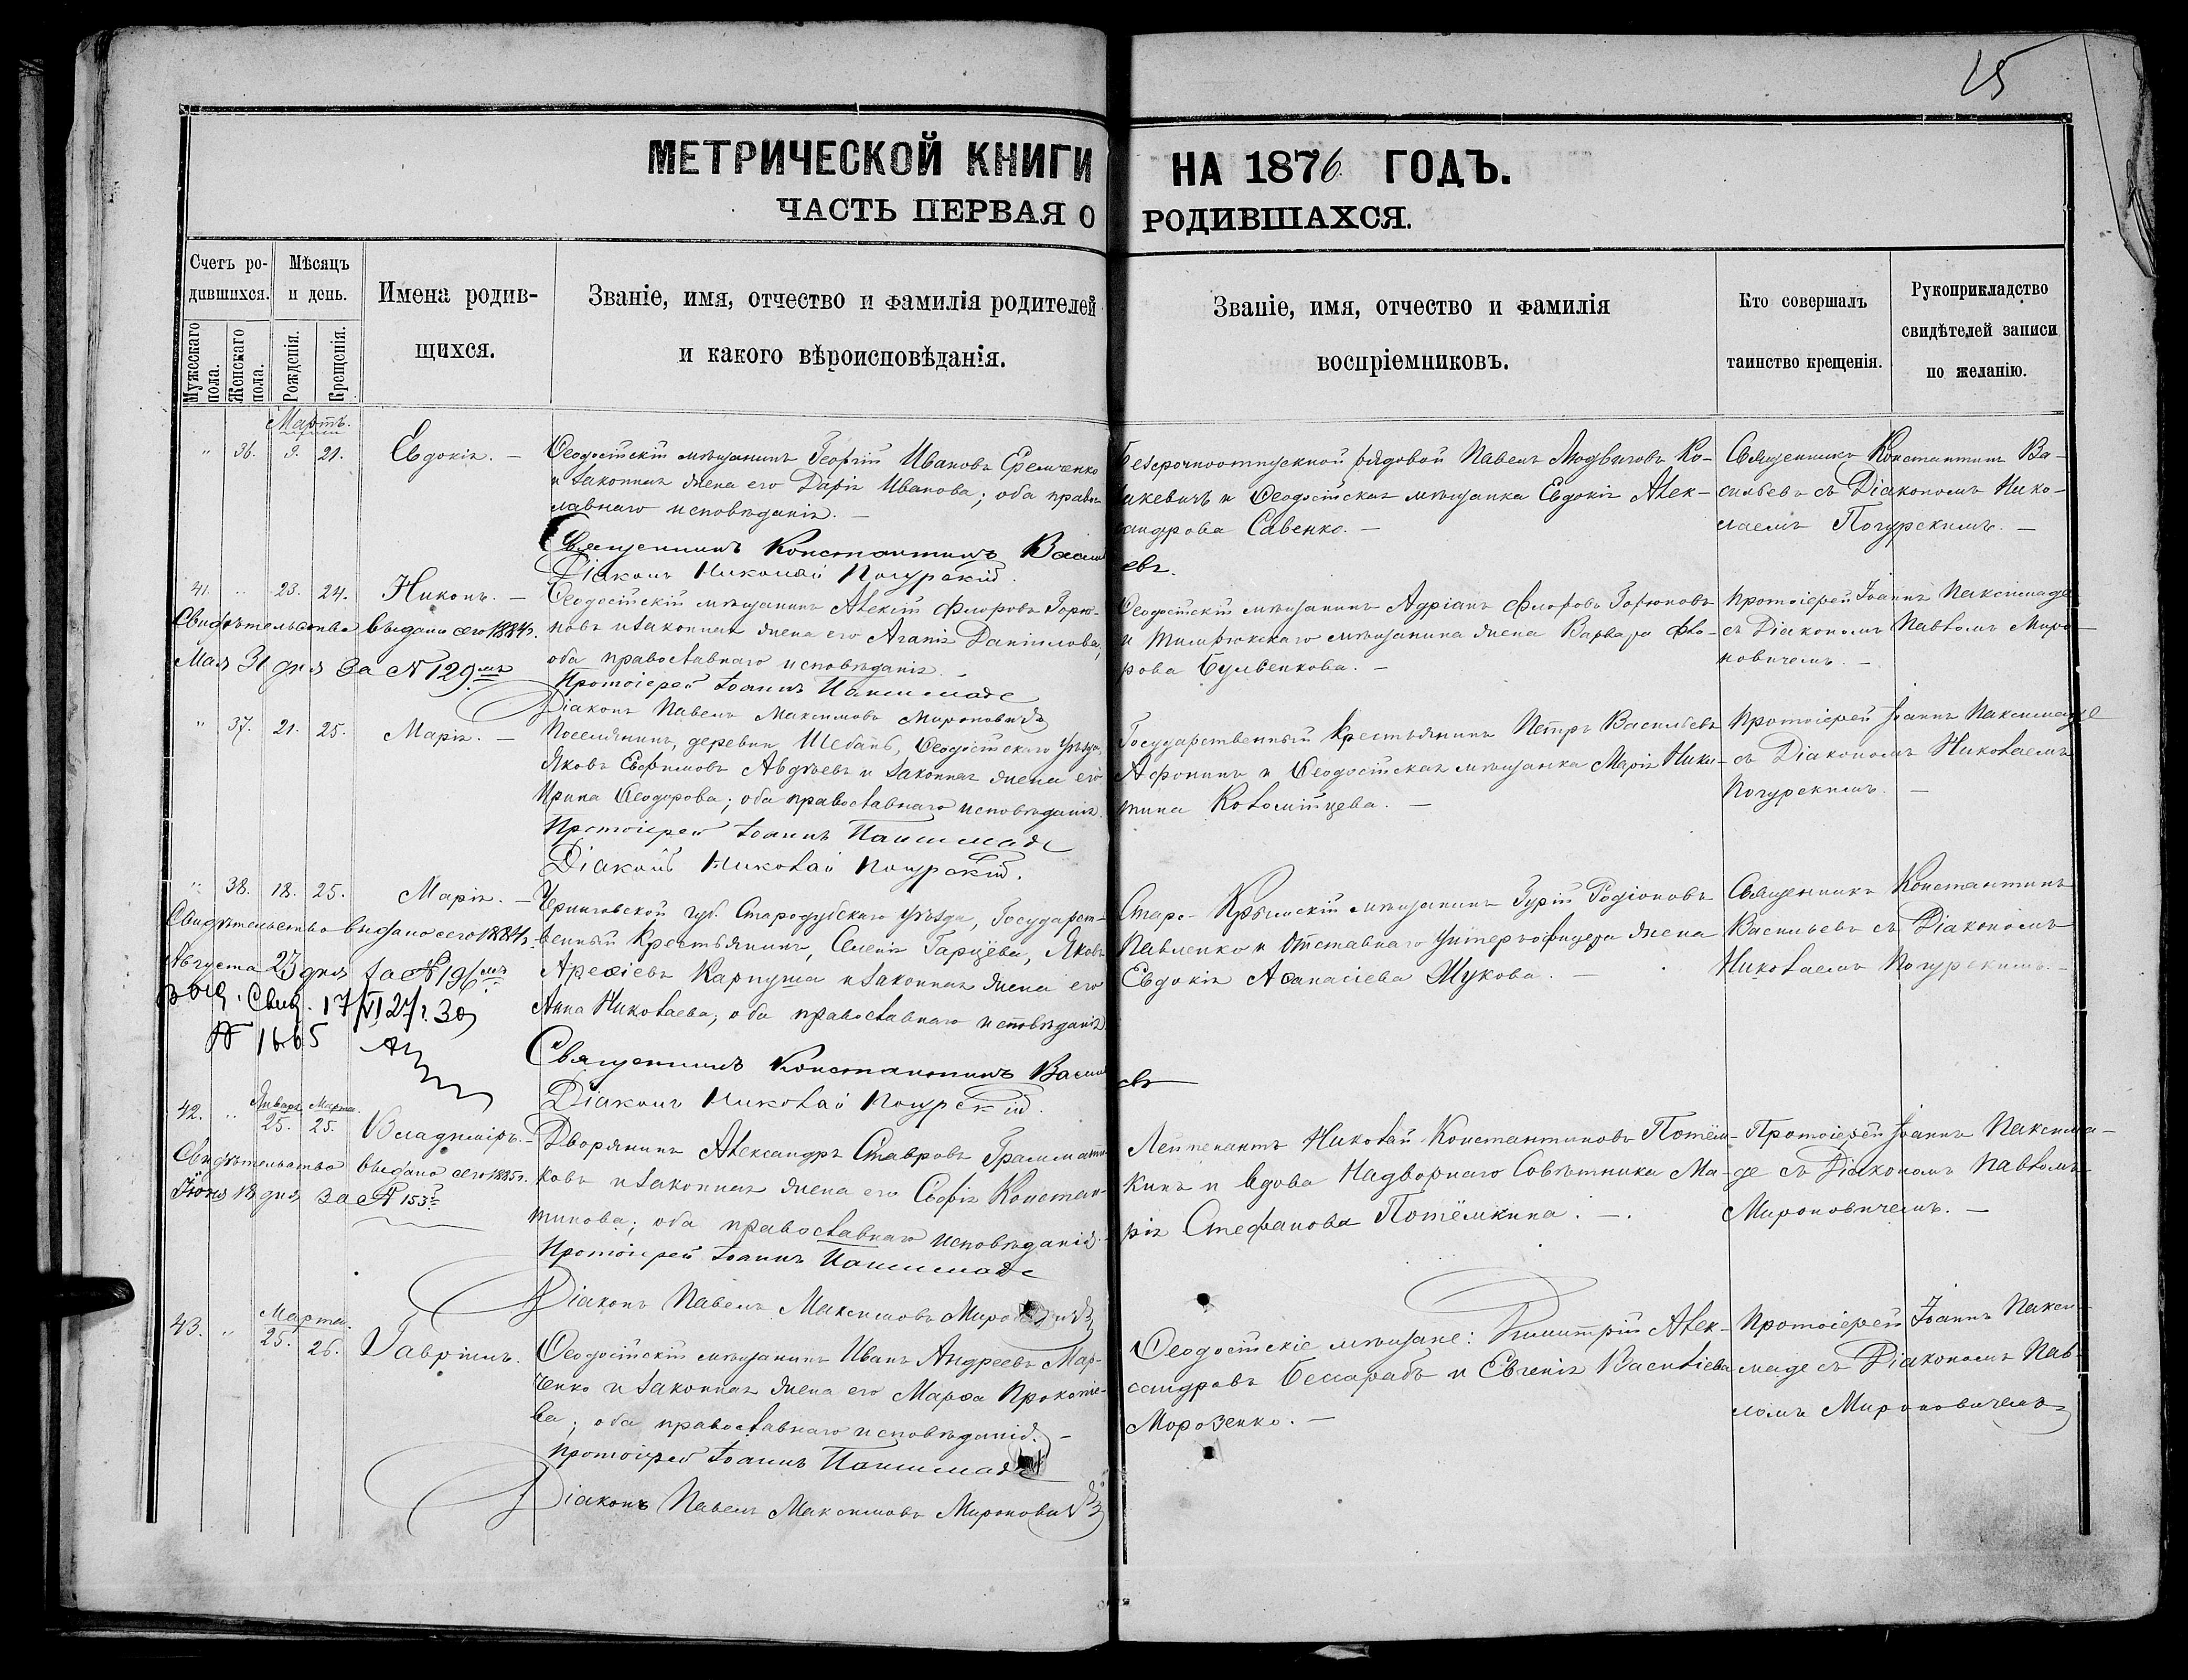 15
МЕТРИЧЕСКОЙ КНИГИ НА 1876 ГОДЪ.
ЧАСТЬ ПЕРВАЯ О РОДИВШАХСЯ.
Счетъ ро-
дившихся.
Мужескаго пола.
Женскаго пола.
Мѣсяцъ
и день.
Рожденія.
Крещенія.
Имена родив-
щихся.
Званіе, имя, отчество и фамилія родителей
и какого вѣроисповѣданія.
Званіе, имя, отчество и фамилія
воспріемниковъ.
Кто совершалъ
таинство крещенія.
Рукоприкладство
свидѣтелей записи
по желанію.
Мартъ.
" 36. 9. 21. Евдокія. —
Ѳеодосійскій мѣщанинъ Георгій Ивановъ Еремченко
и законная жена его Дарія Иванова; оба право-
лавнаго исповѣданія. —
Священникъ Константинъ Василь
евъ.
Діаконъ Николай Погурскій.
Безсрочноотпускной рядовой Павелъ Людвиговъ Ко-
икевичъ и Ѳеодосійская мѣщанка Евдокія Алек-
сандрова Савенко. —
Священникъ Константинъ Ва-
сильевъ съ Діакономъ Нико-
лаемъ Погурскимъ. —
41. " 23. 24. Никонъ. —
Свидѣтельство выдано сего 1884 г.
Мая 31 дня за № 129мъ
Ѳеодосійскій мѣщанинъ Алексій Флоровъ Горю-
новъ и законная жена его Агапія Даніилова,
оба православнаго исповѣданія.
Протоіерей Іоаннъ Паксимаде
Діаконъ Павелъ Максимовъ Мироновичъ
Ѳеодосійскій мѣщанинъ Адріанъ Флоровъ Горюновъ
и Темрюкскаго мѣщанина жена Варвара Фло-
рова Бульенкова. —
Протоіерей Іоаннъ Паксимаде
съ Діакономъ Павломъ Миро-
новичемъ. —
" 37. 21. 25. Марія. —
Поселянинъ, деревни Шебанъ, Ѳеодосійскаго уѣзда,
Яковъ Евфимовъ Авдѣевъ и законная жена его
Ирина Ѳеодорова; оба православнаго исповѣданія.
Протоіерей Іоаннъ Паксимаде
Діаконъ Николай Погурскій.
Государственный крестьянинъ Петръ Васильевъ
Афонинъ и Ѳеодосійская мѣщанка Марія Ники-
тина Коломійцева. —
Протоіерей Іоаннъ Паксимаде
съ Діакономъ Николаемъ
Погурскимъ. —
" 38. 18. 25. Марія. —
Свидѣтельство выдано сего 1884 г.
Августа 23 дня за № 196мъ
Выд. Свид. 17/VI 27 г. 30
№ 1665
Черниговской губ. Стародубскаго уѣзда, Государст-
венный Крестьянинъ, Селенія Гарцёва, Яковъ
Арефіевъ Карпуша и законная жена его
Анна Николаева; оба православнаго исповѣданія.
Священникъ Константинъ Василь
евъ
Діаконъ Николай Погурскій.
Старо-Крымскій мѣщанинъ Гурій Родіоновъ
Павленко и отставнаго унтеръ-офицера жена
Евдокія Аѳанасіева Жукова. —
Священникъ Константинъ
Васильевъ съ Діакономъ
Николаемъ Погурскимъ. —
Января Марта.
42. " 25. 25. Владиміръ. —
Свидѣтельство выдано сего 1885 г.
Іюня 18 дня за № 153
Дворянинъ Александръ Ставровъ Граммати-
ковъ и законная жена его Софія Констан-
тинова; оба православнаго исповѣданія. —
Протоіерей Іоаннъ Паксимаде
Діаконъ Павелъ Максимовъ Мироновичъ
Лейтенантъ Николай Константиновъ Потём-
кинъ и вдова Надворнаго Совѣтника Ма-
рія Стефанова Потёмкина. —
Протоіерей Іоаннъ Паксима-
де съ Діакономъ Павломъ
Мироновичемъ. —
Марта.
43. " 25. 26. Гавріилъ.
Ѳеодосійскій мѣщанинъ Иванъ Андреевъ Мар-
ченко и законная жена его Марѳа Прокопіе-
ва; оба православнаго исповѣданія. —
Протоіерей Іоаннъ Паксимаде
Діаконъ Павелъ Максимовъ Мироновичъ
Ѳеодосійскіе мѣщане: Димитрій Алек-
сандровъ Бессарабъ и Евгенія Василіева
Морозенко. —
Протоіерей Іоаннъ Пакси-
маде съ Діакономъ Пав-
ломъ Мироновичемъ